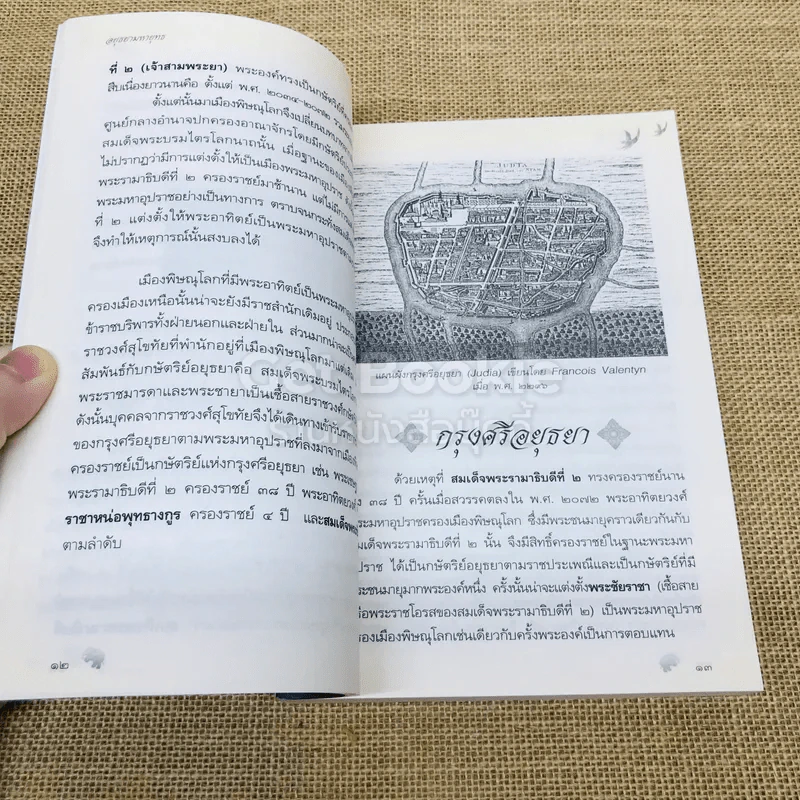 อยุธยามหายุทธ
ที่ ๒ (เจ้าสามพระยา) พระองค์ทรงเป็นกษัตริย์
สืบเนื่องยาวนานคือ ตั้งแต่ พ.ศ. ๒๐๓๔-๒๐๗๒
ตั้งแต่นั้นมาเมืองพิษณุโลกจึงเปลี่ยนบทบาท
ศูนย์กลางอำนาจปกครองอาณาจักรโดยมีกษัตริย์
สมเด็จพระบรมไตรโลกนาถนั้น เมื่อฐานะของเมือง
ไม่ปรากฏว่ามีการแต่งตั้งให้เป็นเมืองพระมหาอุปราช
พระรามาธิบดีที่ ๒ ครองราชย์มาช้านาน แต่ไม่มีการ
พระมหาอุปราชอย่างเป็นทางการ ตราบจนกระทั่งสมเด็จ
ที่ ๒ แต่งตั้งให้พระอาทิตย์เป็นพระมหาอุปราช
จึงทำให้เหตุการณ์นั้นสงบลงได้
เมืองพิษณุโลกที่มีพระอาทิตย์เป็นพระมหาอุปราช
ครองเมืองเหนือนั้นน่าจะยังมีราชสำนักเดิมอยู่
ข้าราชบริพารทั้งฝ่ายนอกและฝ่ายใน ส่วนมากน่าจะเป็น
ราชวงศ์สุโขทัยที่พำนักอยู่ที่เมืองพิษณุโลกมาแต่เดิม
สัมพันธ์กับกษัตริย์อยุธยาคือ สมเด็จพระบรมไตรโลก
พระราชมารดาและพระชายาเป็นเชื้อสายราชวงศ์
ดังนั้นบุคคลจากราชวงศ์สุโขทัยจึงได้เดินทางเข้ารับราช
ของกรุงศรีอยุธยาตามพระมหาอุปราชที่ลงมาจากเมือง
ครองราชย์เป็นกษัตริย์แห่งกรุงศรีอยุธยา เช่น
พระรามาธิบดีที่ ๒ ครองราชย์ ๓๘ ปี พระอาทิตยวงศ์
ราชาหน่อพุทธางกูร ครองราชย์ ๔ ปี และสมเด็จพระ
ตามลำดับ
๑๒
JUDIA
แผนผังกรุงศรีอยุธยา (Judia) เขียนโดย Francois Valentyn
เมื่อ พ.ศ. ๒๒๖๖
Get Bookie
ร้านหนังสือกุ๊กกี้
กรุงศรีอยุธยา
ด้วยเหตุที่ สมเด็จพระรามาธิบดีที่ ๒ ทรงครองราชย์นาน
๓๘ ปี ครั้นเมื่อสวรรคตลงใน พ.ศ. ๒๐๗๒ พระอาทิตยวงศ์
พระมหาอุปราชครองเมืองพิษณุโลก ซึ่งมีพระชนมายุคราวเดียวกันกับ
สมเด็จพระรามาธิบดีที่ ๒ นั้น จึงมีสิทธิ์ครองราชย์ในฐานะพระมหา
อุปราช ได้เป็นกษัตริย์อยุธยาตามราชประเพณีและเป็นกษัตริย์ที่มี
พระชนมายุมากพระองค์หนึ่ง ครั้งนั้นน่าจะแต่งตั้งพระชัยราชา (เชื้อสาย
หรือพระราชโอรสของสมเด็จพระรามาธิบดีที่ ๒) เป็นพระมหาอุปราช
ครองเมืองพิษณุโลกเช่นเดียวกับครั้งพระองค์เป็นการตอบแทน
๑๓